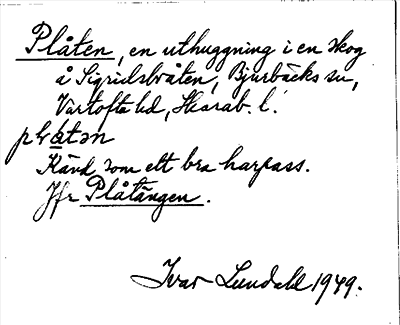 Plåten, en uthuggning i en skog
å Sigridslvåten, Bjurbäcks sn,
Vartofta hd, Skarab. l.
plåtən
Känd som ett bra harpass.
Jfr Plåtängen.
Ivar Lundahl 1949.